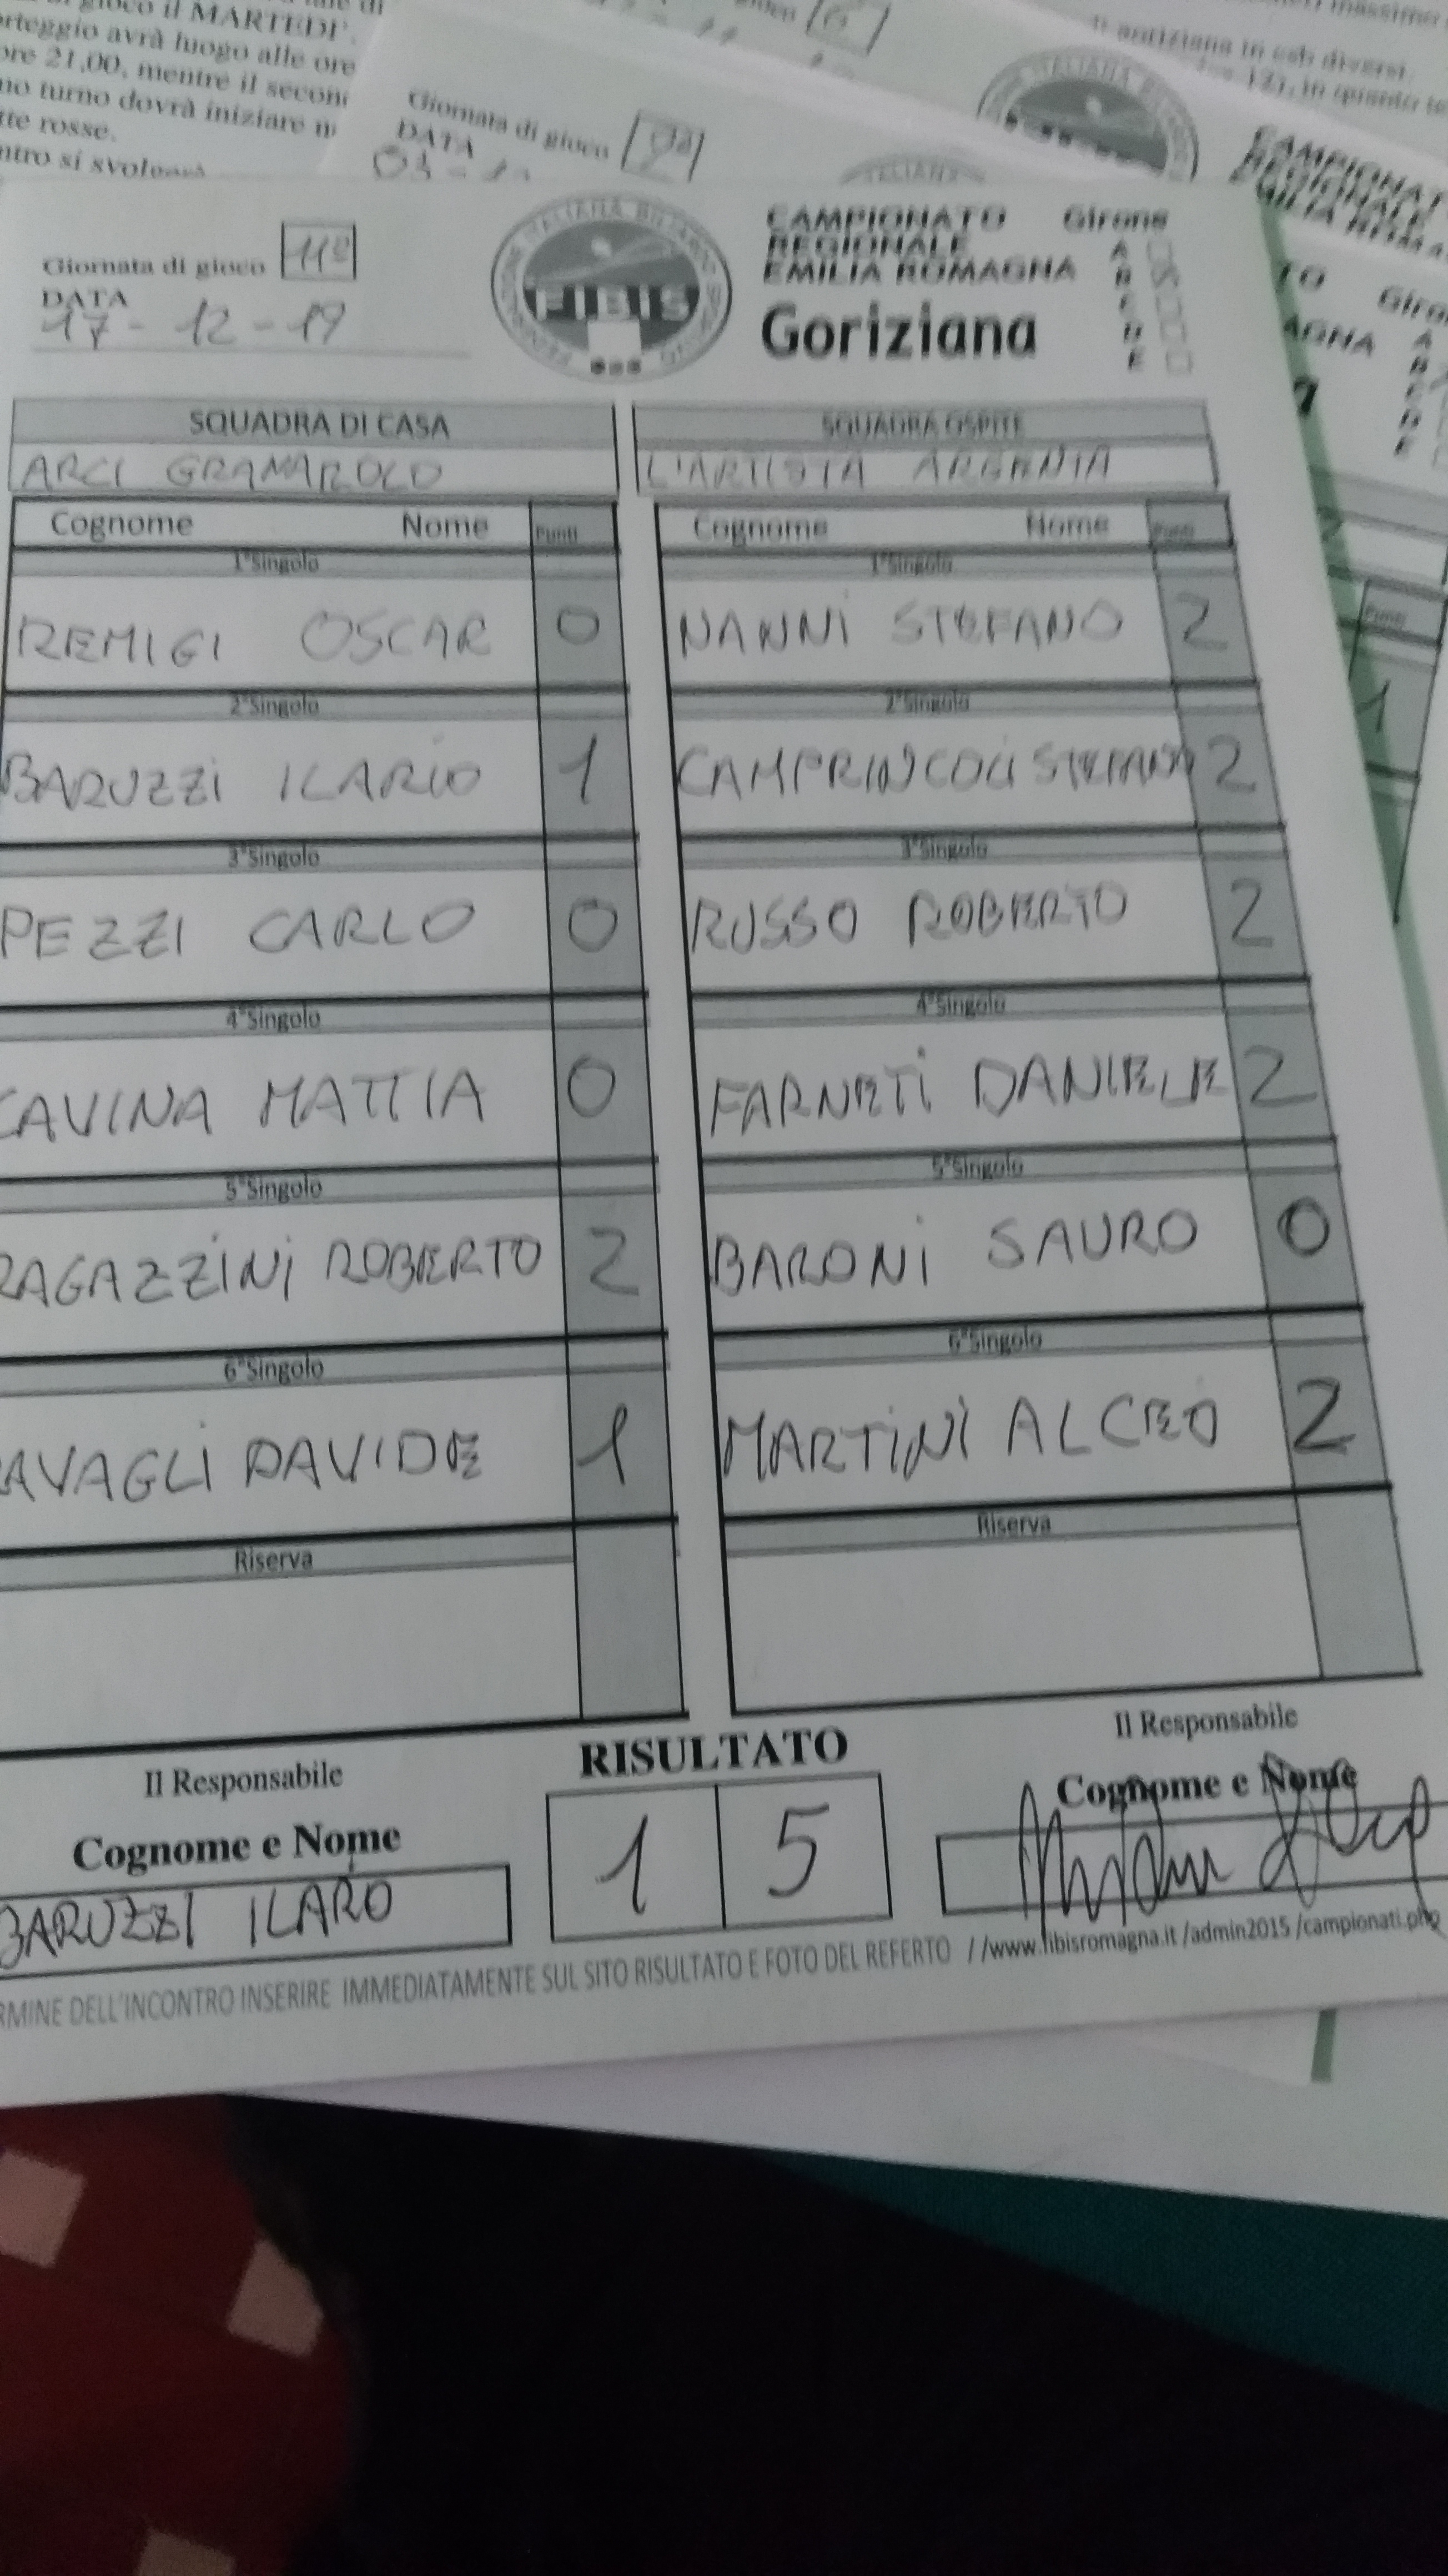 gioco il MARTEDI'.
orteggio avrà luogo alle ore
ore 21,00, mentre il secon
no turno dovrà iniziare
tte rosse.
ntro si svolgerà
Giornata di gioco 2ª
DATA
03 -
Giornata di gioco 11ª
DATA
17 - 12 - 19
FIBIS
CAMPIONATO
REGIONALE
EMILIA ROMAGNA
Goriziana
Girone
A
B
C
D
E
SQUADRA DI CASA SQUADRA OSPITE
ARCI GRANAROLO L'ARTISTA ARGENTA
Cognome Nome Punti Cognome Nome Punti
1°Singolo 1°Singolo
REMIGI OSCAR 0 NANNI STEFANO 2
2°Singolo 2°Singolo
BARUZZI ILARIO 1 CAMPRINCOLI STEFANO 2
3°Singolo 3°Singolo
PEZZI CARLO 0 RUSSO ROBERTO 2
4°Singolo 4°Singolo
CAVINA MATTIA 0 FARNETI DANIELE 2
5°Singolo 5°Singolo
RAGAZZINI ROBERTO 2 BARONI SAURO 0
6°Singolo 6°Singolo
AVAGLI DAVIDE 1 MARTINI ALCEO 2
Riserva Riserva
Il Responsabile RISULTATO Il Responsabile
Cognome e Nome 1 5 Cognome e Nome
BARUZZI ILARO
RMINE DELL'INCONTRO INSERIRE IMMEDIATAMENTE SUL SITO RISULTATO E FOTO DEL REFERTO //www.fibisromagna.it /admin2015 /campionati.php